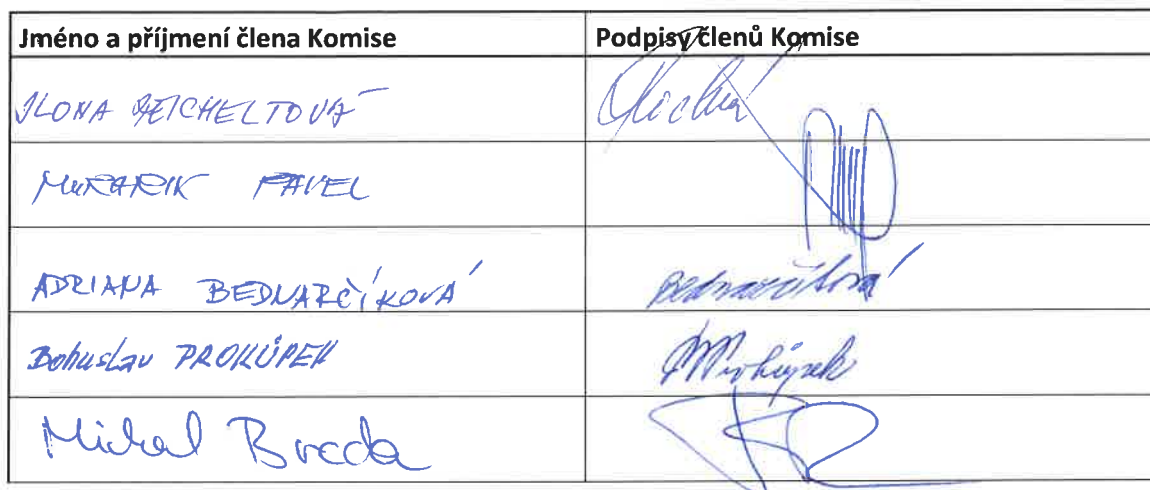 Jméno a příjmení člena Komise Podpisy členů Komise
ILONA REICHELTOVÁ
PAVEL
ADRIANA BEDNARČÍKOVÁ Bednarčíková
Bohuslav PROKŮPEK Prokůpek
Michal Breda